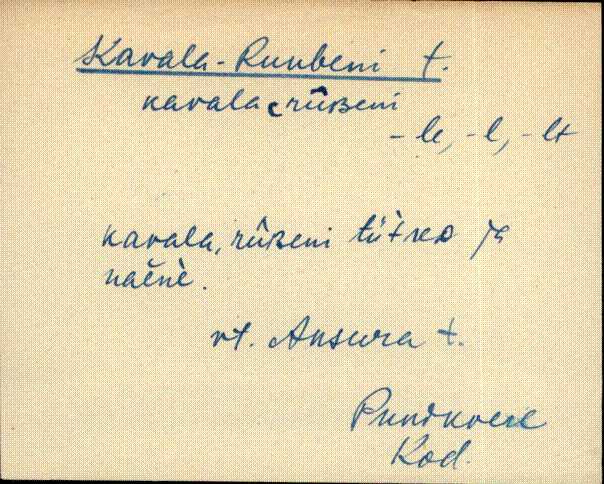 Kavala-Ruubeni t.
kavala, rūʙeni
-le, -l, -lt
kavala, rūʙeni tütreᴅ ja
naĕnè.
vt. Ansura t.
Punikvere
Kod.